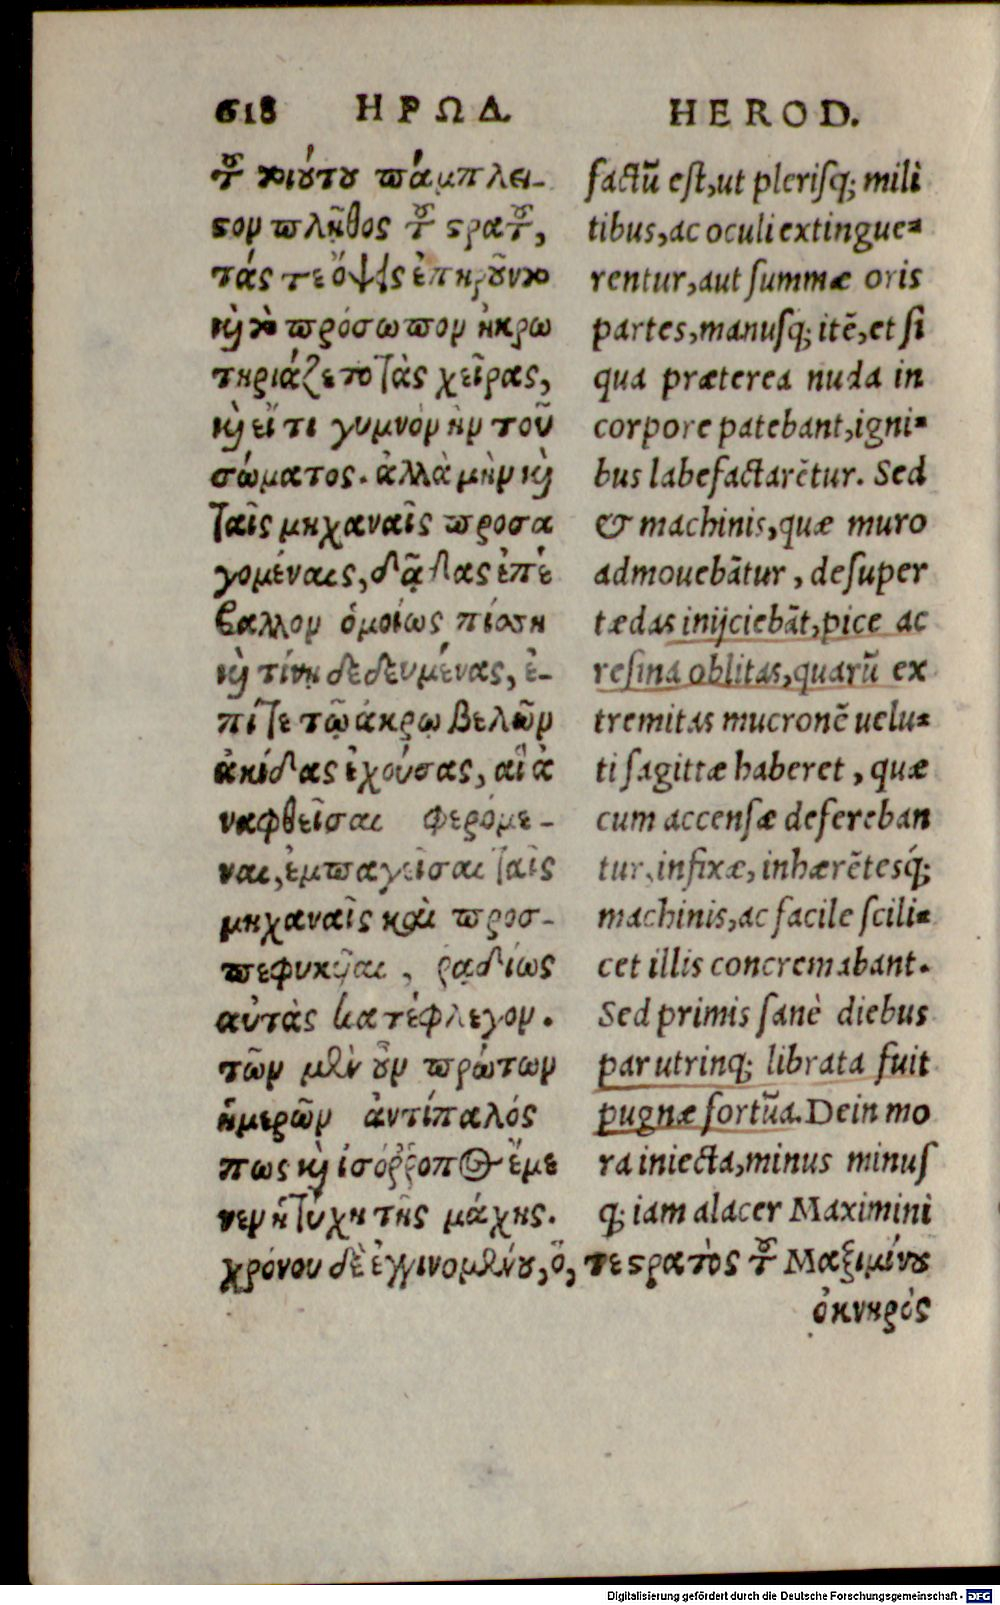 618 ΗΡΩΔ.
τοῦ τοιούτου πάμπλει-
στον πλῆθος τοῦ στρατοῦ,
τάς τε ὄψεις ἐπηροῦντο
καὶ τὸ πρόσωπον ἠκρω
τηριάζετο τὰς χεῖρας,
καὶ εἴ τι γυμνὸν ἦν τοῦ
σώματος. ἀλλὰ μὴν καὶ
ταῖς μηχαναῖς προσα
γομέναις, δᾷδας ἐπέ
βαλλον ὁμοίως πίσσῃ
καὶ τίνῃ δεδευμένας, ἐ-
πί τε τῷ ἄκρῳ βελῶν
ἀκίδας ἐχούσας, αἳ ἀ
ναφθεῖσαι φερόμε-
ναι, ἐμπαγεῖσαι ταῖς
μηχαναῖς καὶ προσ-
πεφυκῦαι, ῥαδίως
αὐτὰς κατέφλεγον.
τῶν μὲν οὖν πρώτων
ἡμερῶν ἀντίπαλός
πως καὶ ἰσόῤῥοπος ἔμε
νεν ἡ τύχη τῆς μάχης.
χρόνου δὲ ἐγγινομένου, ὅ, τε στρατὸς τοῦ Μαξιμίνου
ὀκνηρός
HEROD.
factũ est, ut plerisq; mili
tibus, ac oculi extingue=
rentur, aut summæ oris
partes, manusq; itẽ, et si
qua præterea nuda in
corpore patebant, igni=
bus labefactarẽtur. Sed
& machinis, quæ muro
admouebãtur, desuper
tædas inijciebãt, pice ac
resina oblitas, quarũ ex
tremitas mucronẽ uelu=
ti sagittæ haberet, quæ
cum accensæ defereban
tur, infixæ, inhærẽtesq́;
machinis, ac facile scili=
cet illis concremabant.
Sed primis sanè diebus
par utrinq; librata fuit
pugnæ fortũa. Dein mo
ra iniecta, minus minus
q; iam alacer Maximini
Digitalisierung gefördert durch die Deutsche Forschungsgemeinschaft - DFG